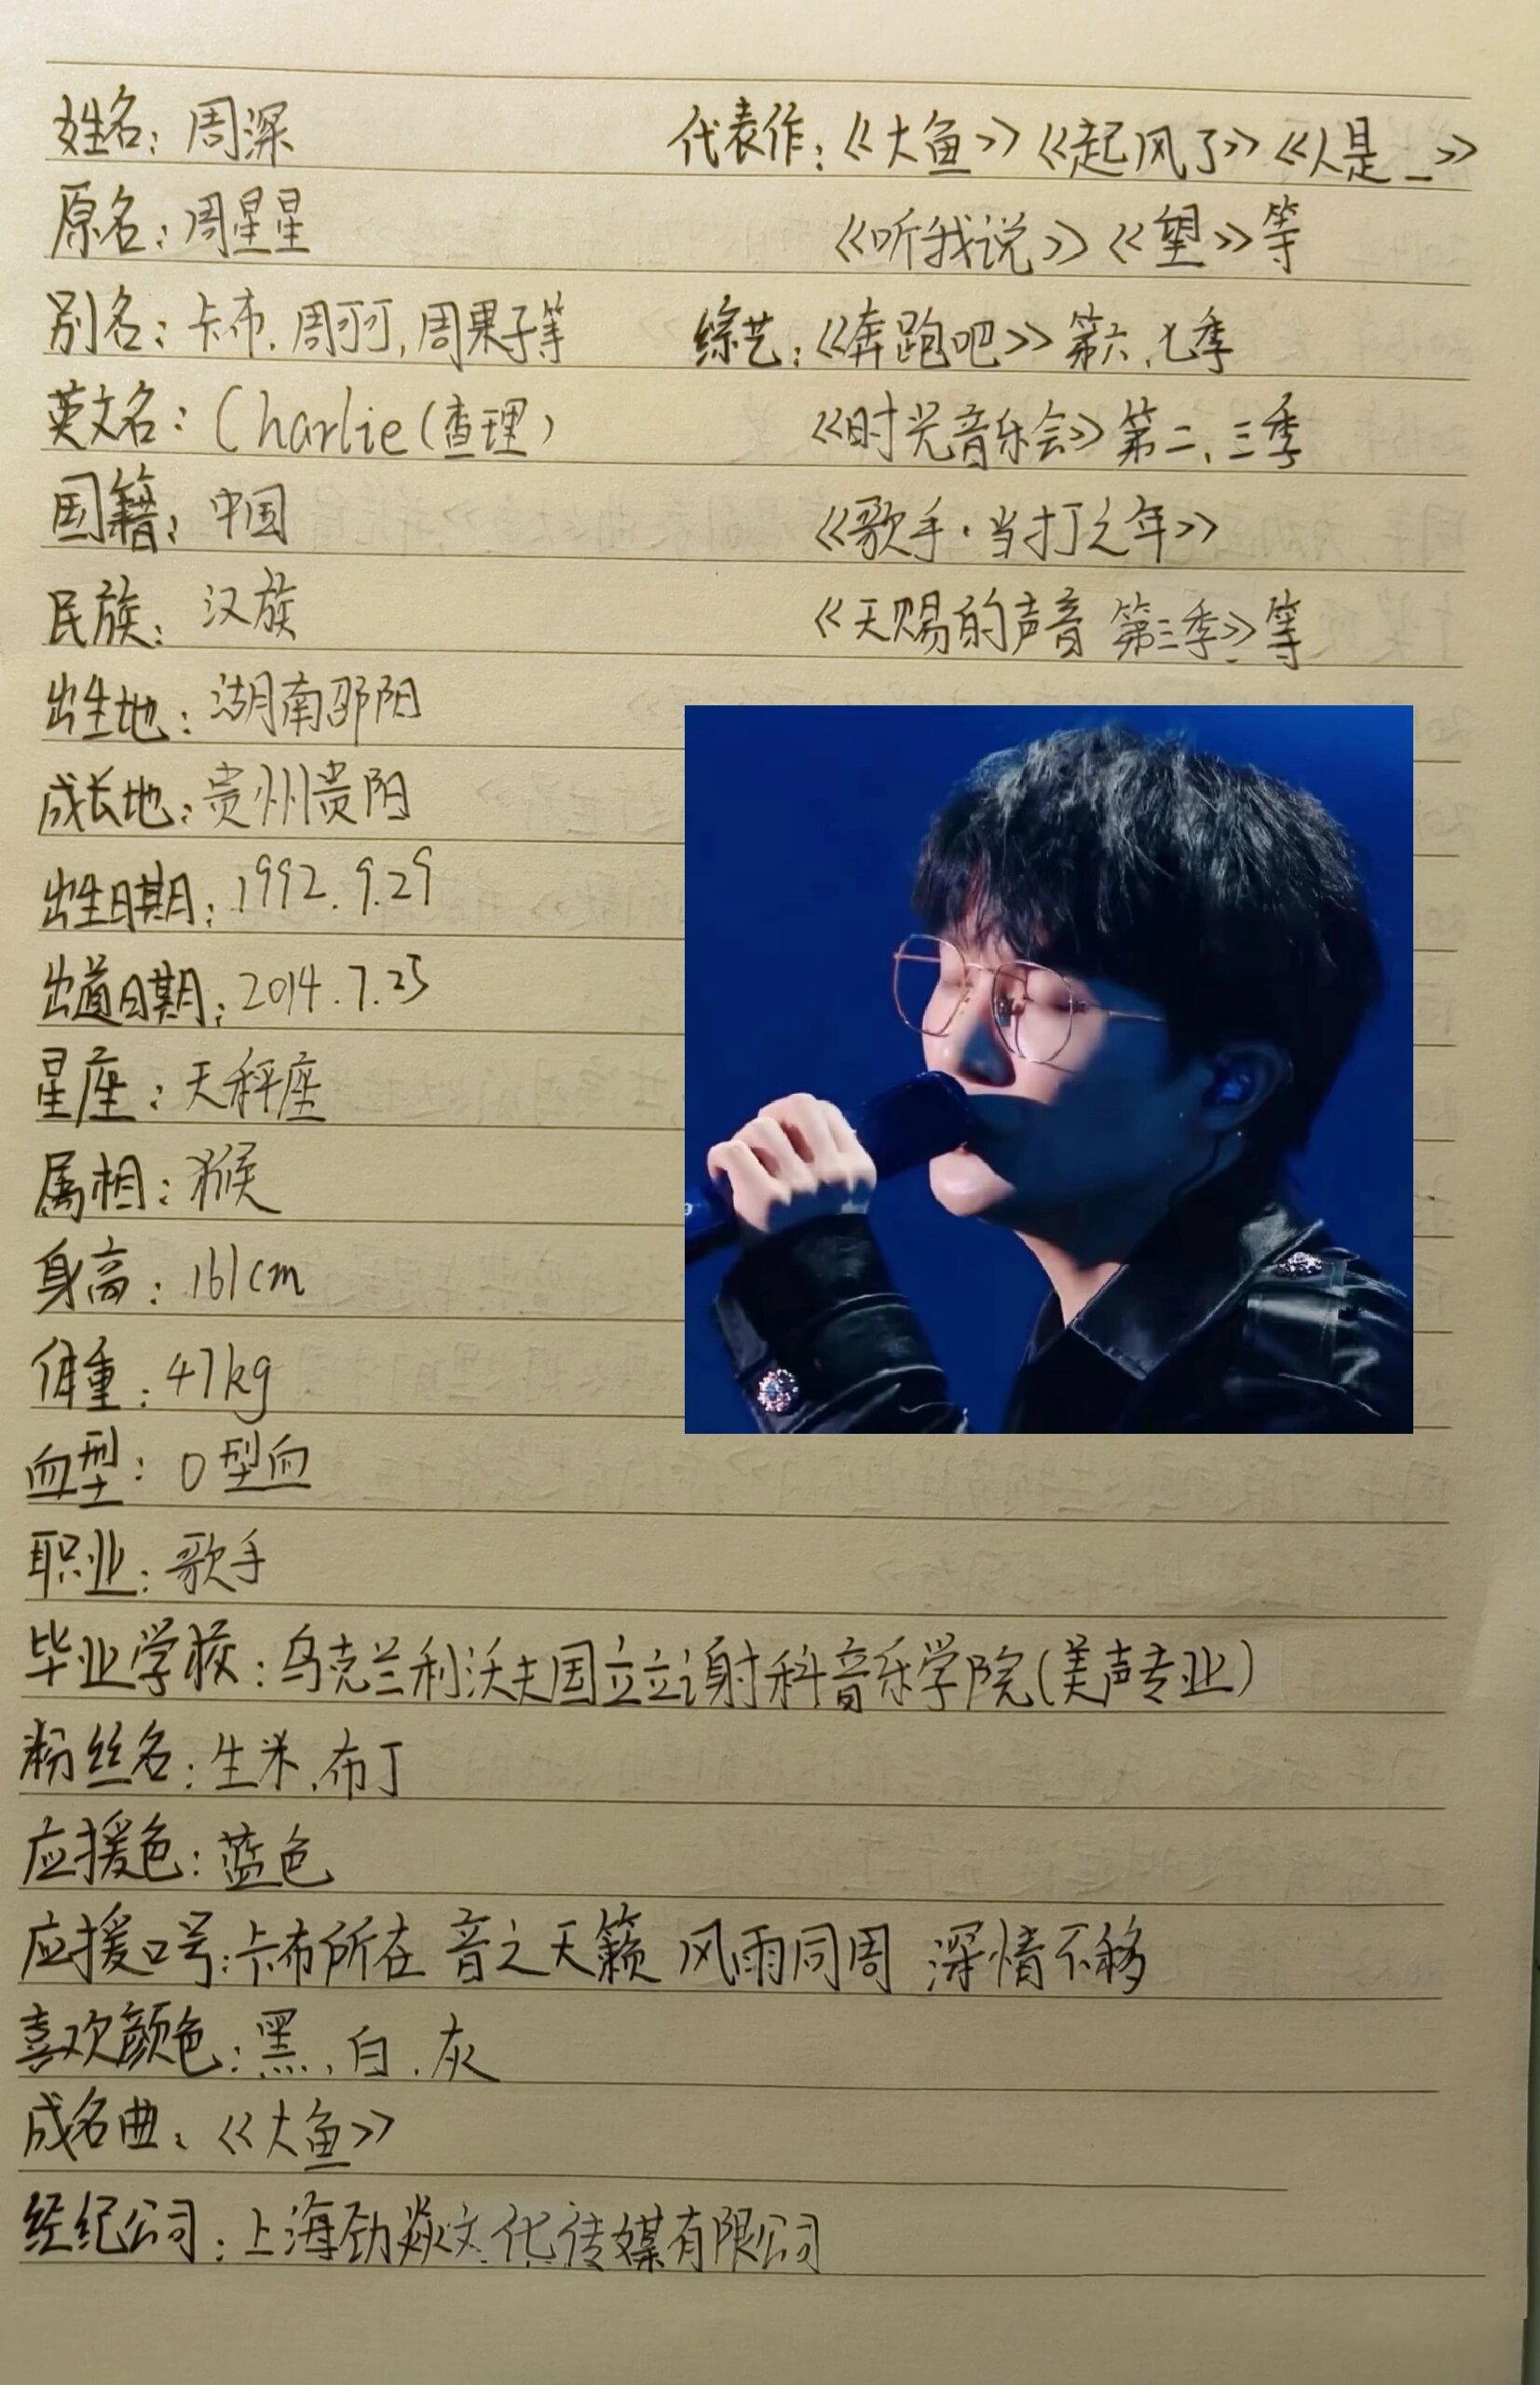 姓名：周深
原名：周星星
别名：卡布.周可可,周果子等
英文名：Charlie（查理）
国籍：中国
民族：汉族
出生地：湖南邵阳
成长地：贵州贵阳
出生日期：1992.9.29
出道日期：2014.7.25
星座：天秤座
属相：猴
身高：161cm
体重：47kg
血型：O型血
职业：歌手
毕业学校：乌克兰利沃夫国立立谢科音乐学院(美声专业)
粉丝名：生米.布丁
应援色：蓝色
应援口号：卡布所在 音之天籁 风雨同周 深情不移
喜欢颜色：黑、白.灰
成名曲：《大鱼》
经纪公司：上海劲焱文化传媒有限公司
代表作：《大鱼》《起风了》《人是_》
《听我说》《望》等
综艺：《奔跑吧》第六、七季
《时光音乐会》第二、三季
《歌手·当打之年》
《天赐的声音 第三季》等